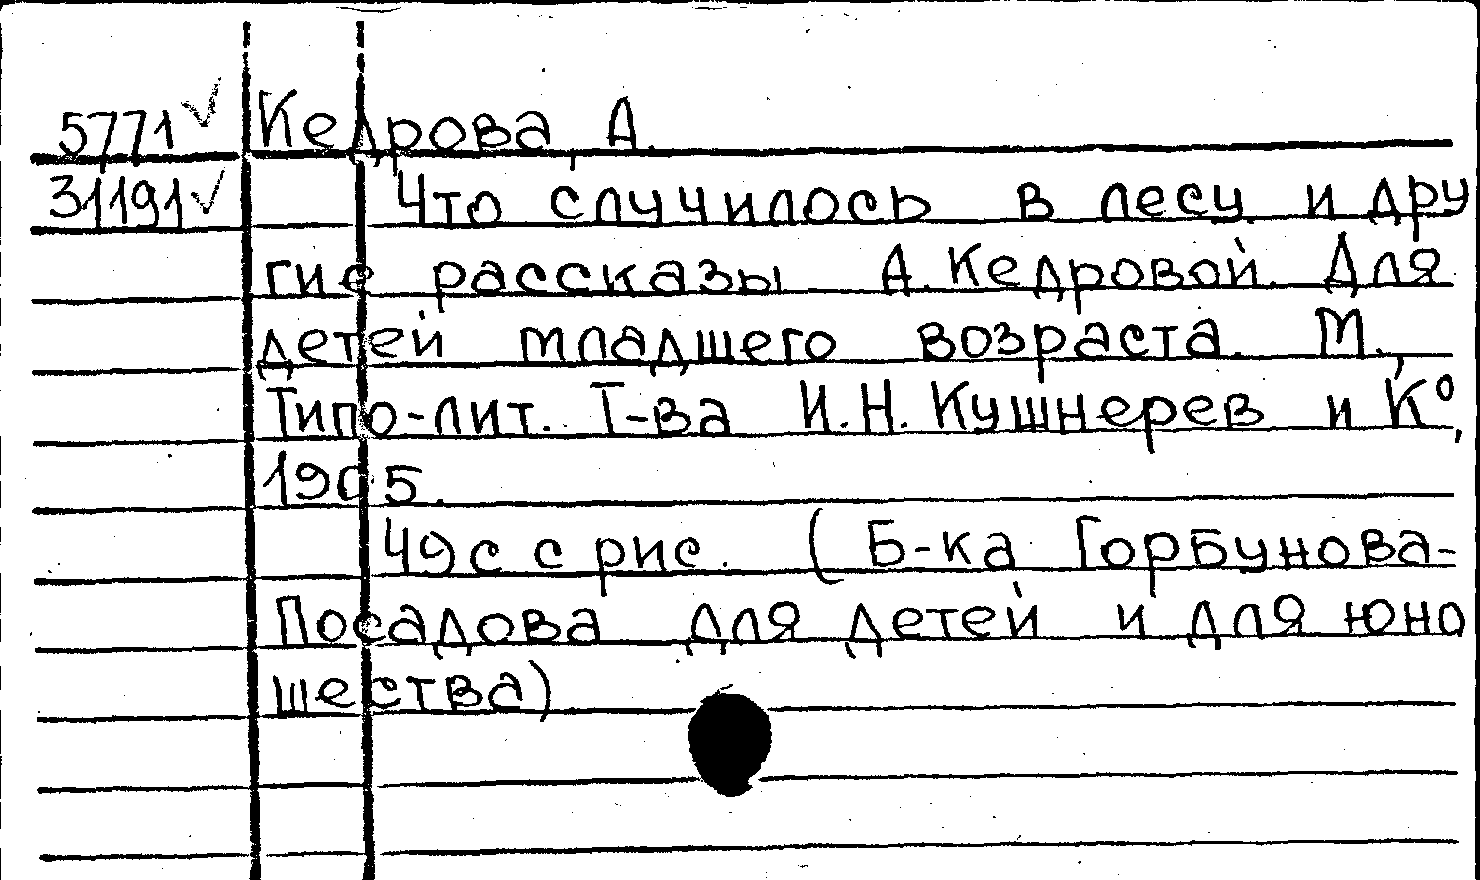 5771 ✓ Кедрова, А.
31191 ✓ Что случилось в лесу и дру
гие рассказы А. Кедровой. Для
детей младшего возраста. М.,
Типо-лит. Т-ва И.Н. Кушнерев и К°,
1905.
49 с с рис. (Б-ка Горбунова-
Посадова для детей и для юно
шества)